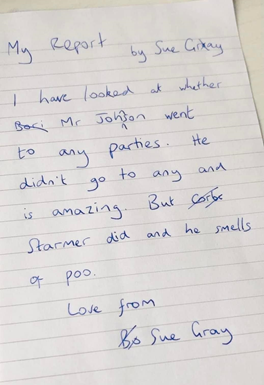 My Report by Sue Gray
I have looked at whether
Bori Mr Johnson went
to any parties. He
didn't go to any and
is amazing. But Corbs
Starmer did and he smells
of poo.
Love from
Bo Sue Gray